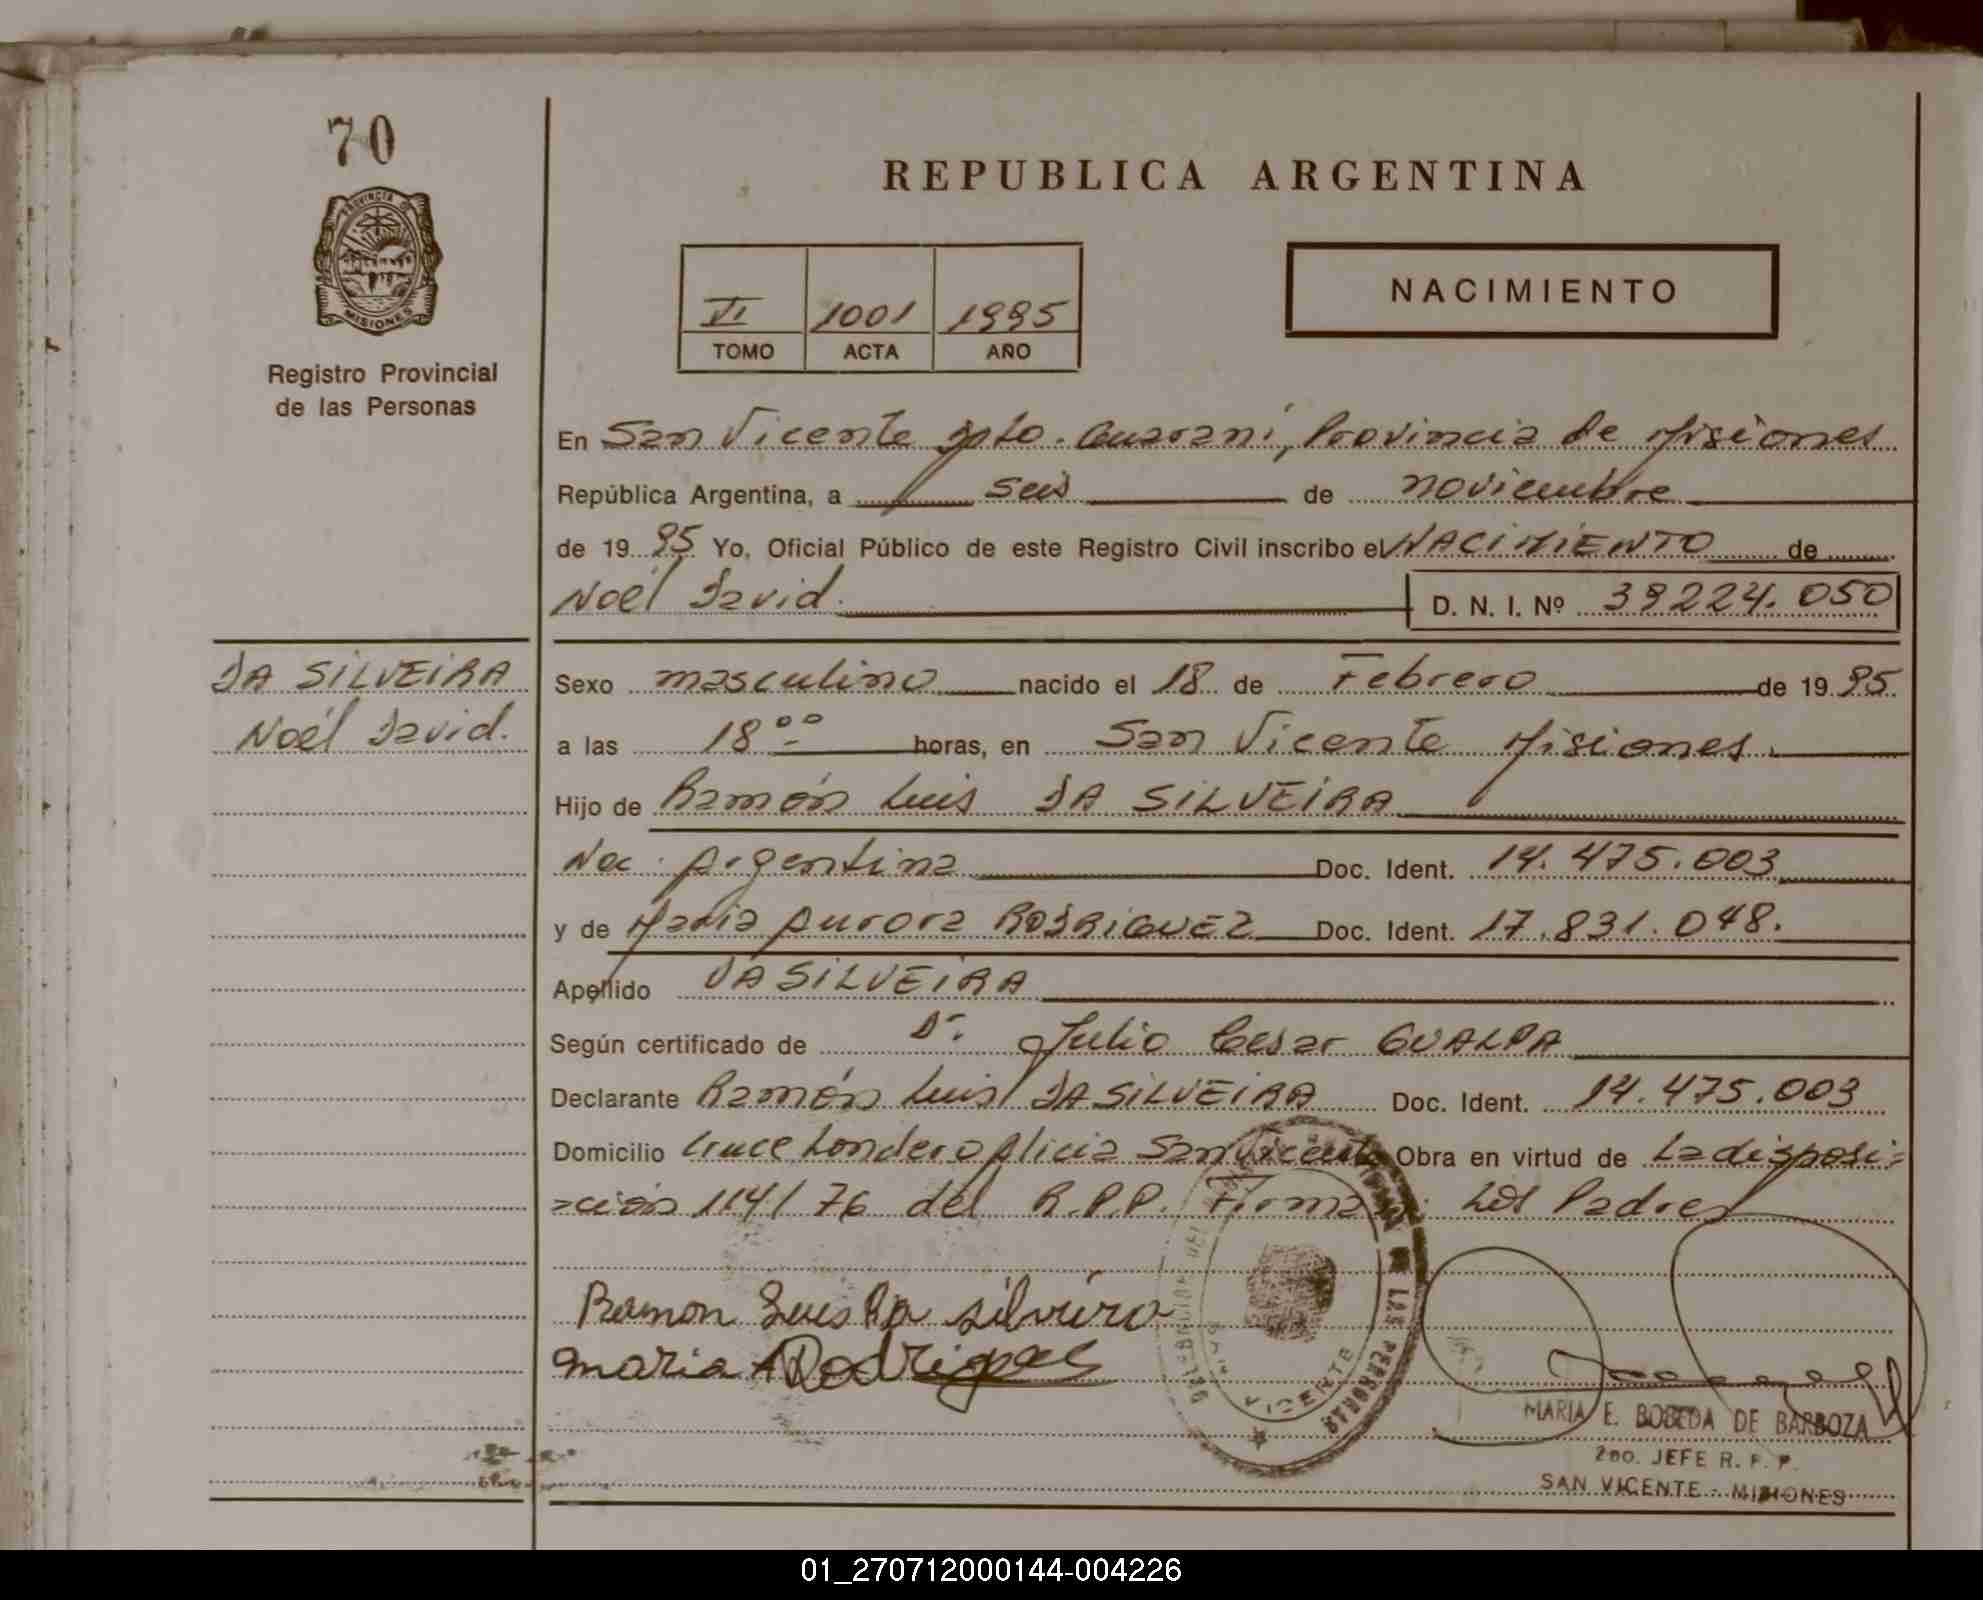 70
PROVINCIA DE
MISIONES
Registro Provincial
de las Personas
REPUBLICA ARGENTINA
VI 1001 1995
TOMO ACTA AÑO
NACIMIENTO
En San Vicente Dpto. Guaraní, Provincia de Misiones
República Argentina, a seis de noviembre
de 1995 Yo, Oficial Público de este Registro Civil inscribo el NACIMIENTO de
Noél David. D. N. I. Nº 39224.050
DA SILVEIRA
Noél David.
Sexo masculino nacido el 18 de Febrero de 1995
a las 18 00 horas, en San Vicente Misiones.
Hijo de Ramón Luis DA SILVEIRA
Nac. Argentina Doc. Ident. 14.475.003
y de María Aurora RODRIGUEZ Doc. Ident. 17.831.048.
Apellido DA SILVEIRA
Según certificado de Dr. Julio Cesar GUALPA
Declarante Ramón Luis DA SILVEIRA Doc. Ident. 14.475.003
Domicilio Cruce Londero Alicia San Vicente Obra en virtud de La disposi-
ción 114/76 del R.P.P. Firma Los Padres
Ramon Luis Da silveira
maria A Rodriguez
LAS PERSONAS
VICENTE
MARIA E. BOBEDA DE BARBOZA
2DO. JEFE R. P. P.
SAN VICENTE - MISIONES
01_270712000144-004226